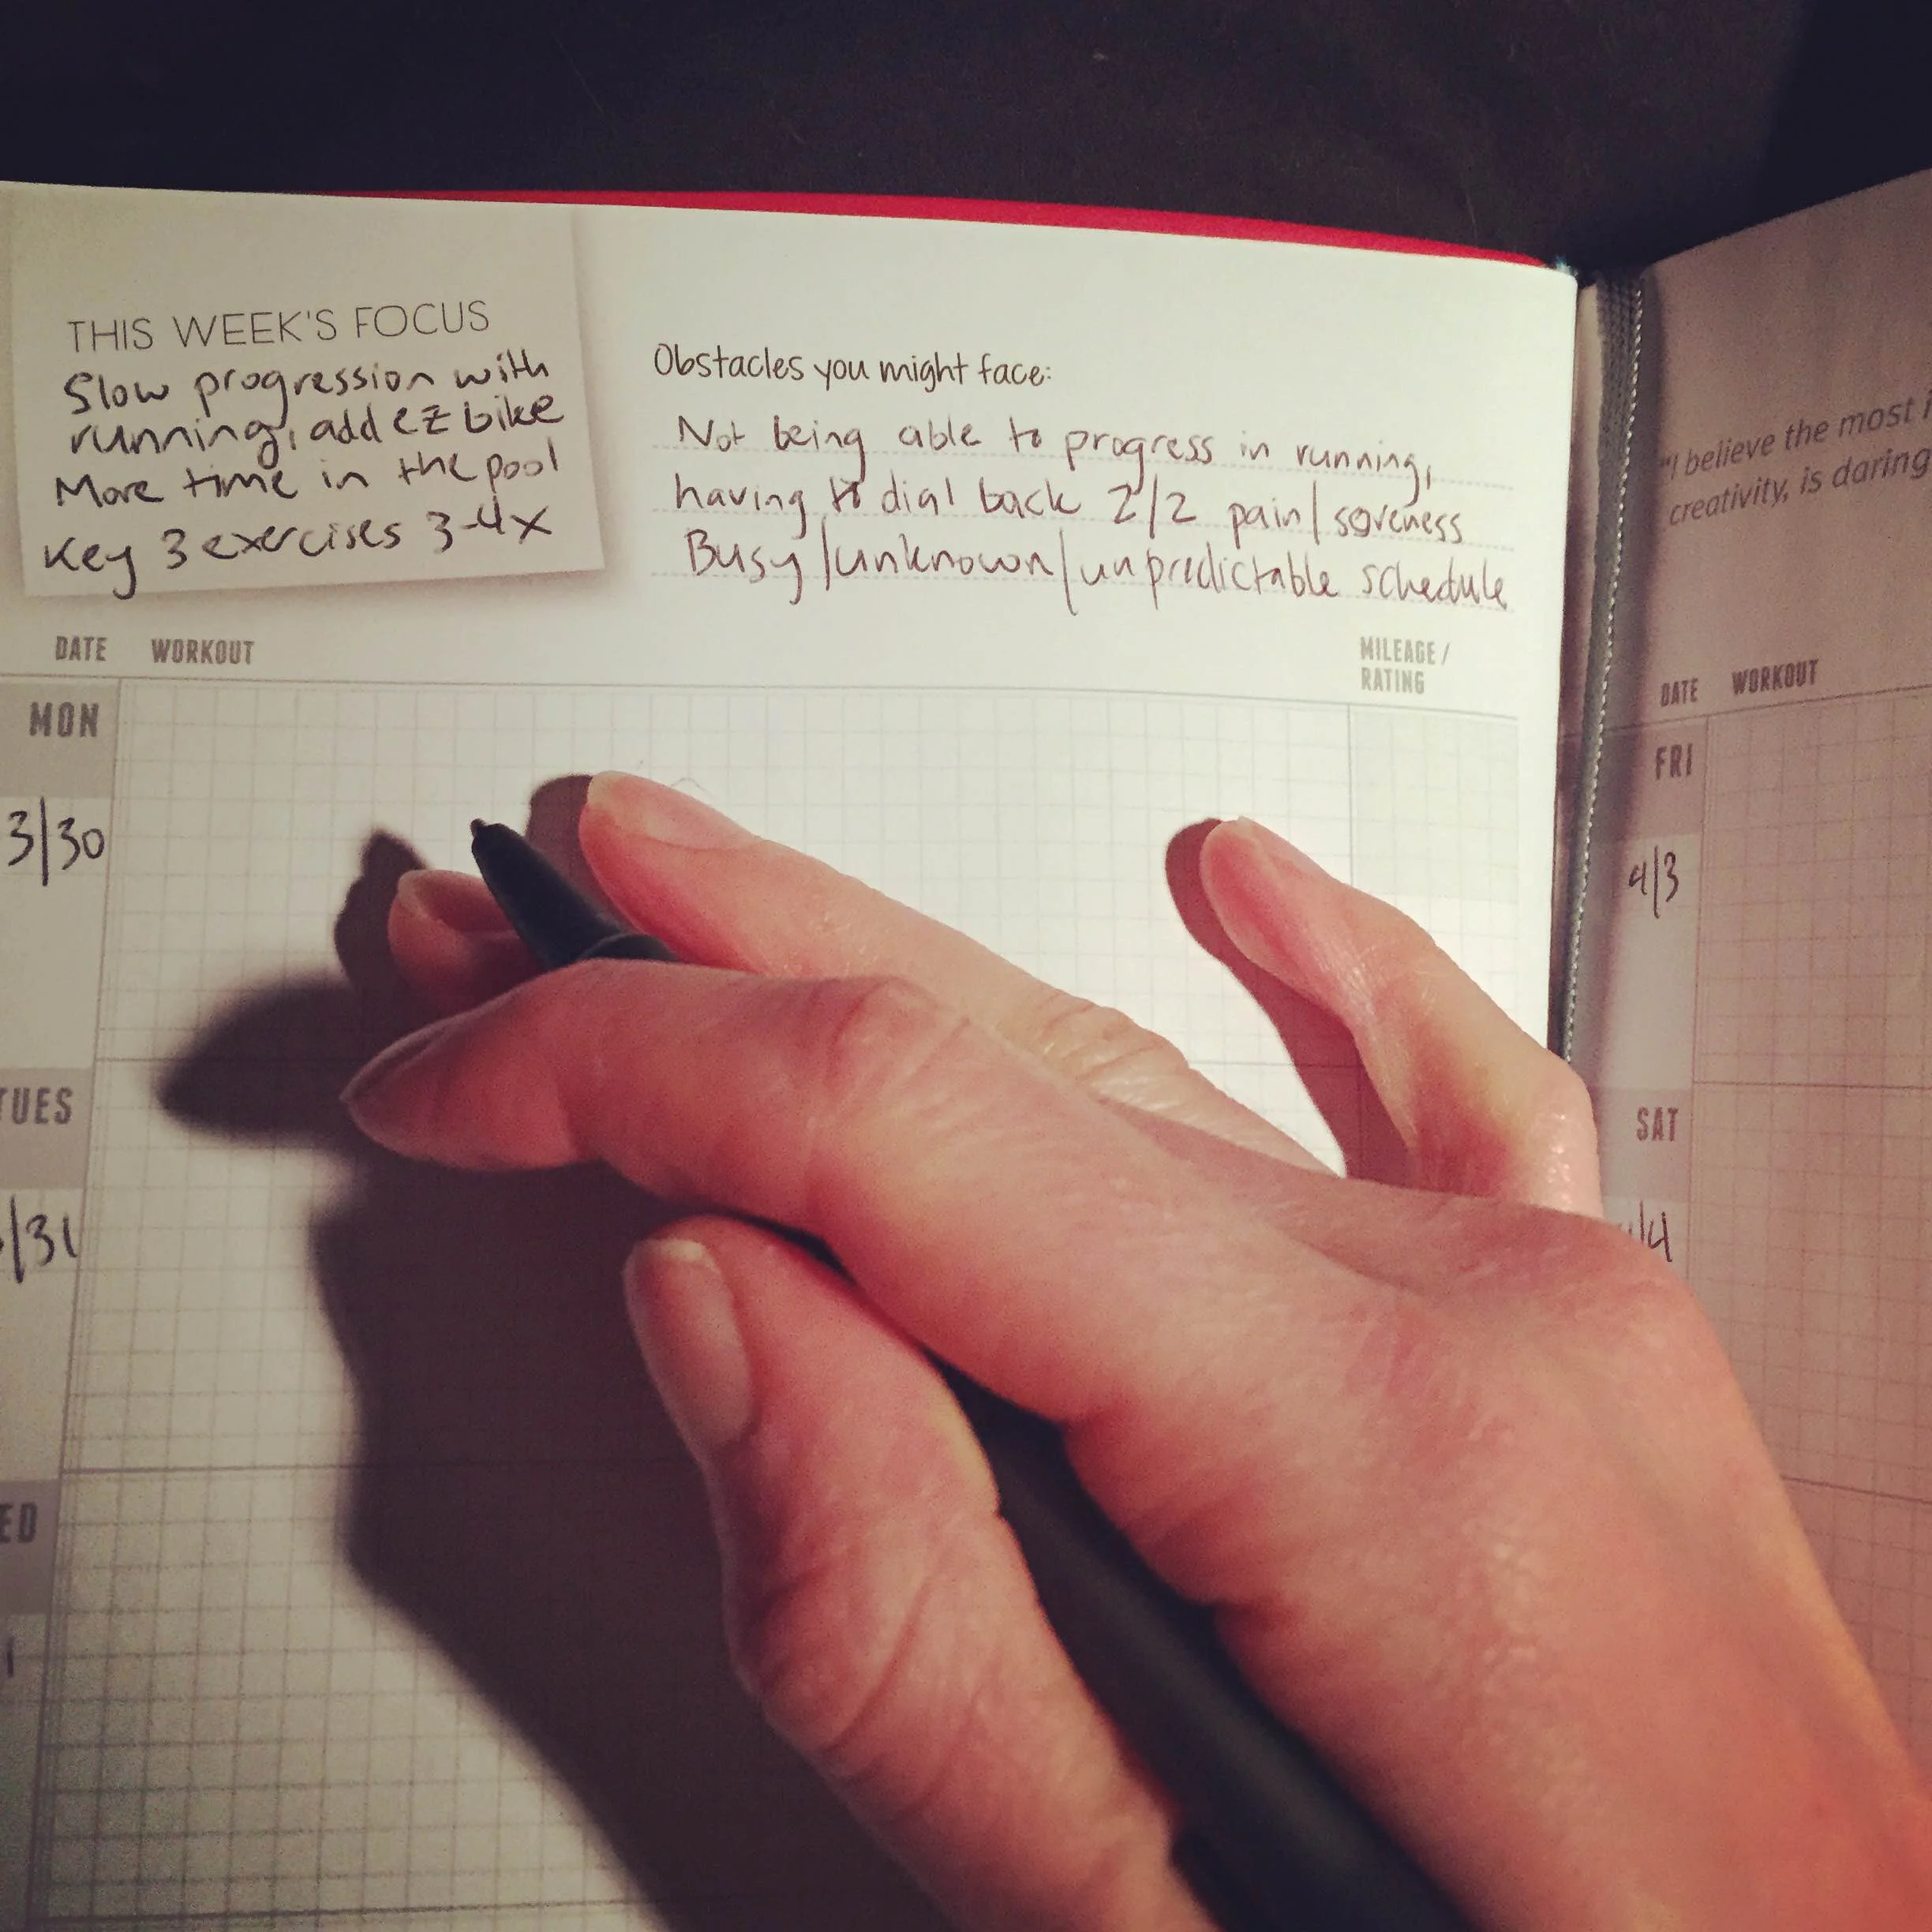 THIS WEEK'S FOCUS
Slow progression with
running, add ez bike
More time in the pool
Key 3 exercises 3-4x
Obstacles you might face:
Not being able to progress in running,
having to dial back 2/2 pain/soreness
Busy/unknown/unpredictable schedule
DATE WORKOUT
MILEAGE /
RATING
MON
3/30
TUES
/31
ED
"I believe the most i
creativity, is daring
DATE WORKOUT
FRI
4/3
SAT
/4